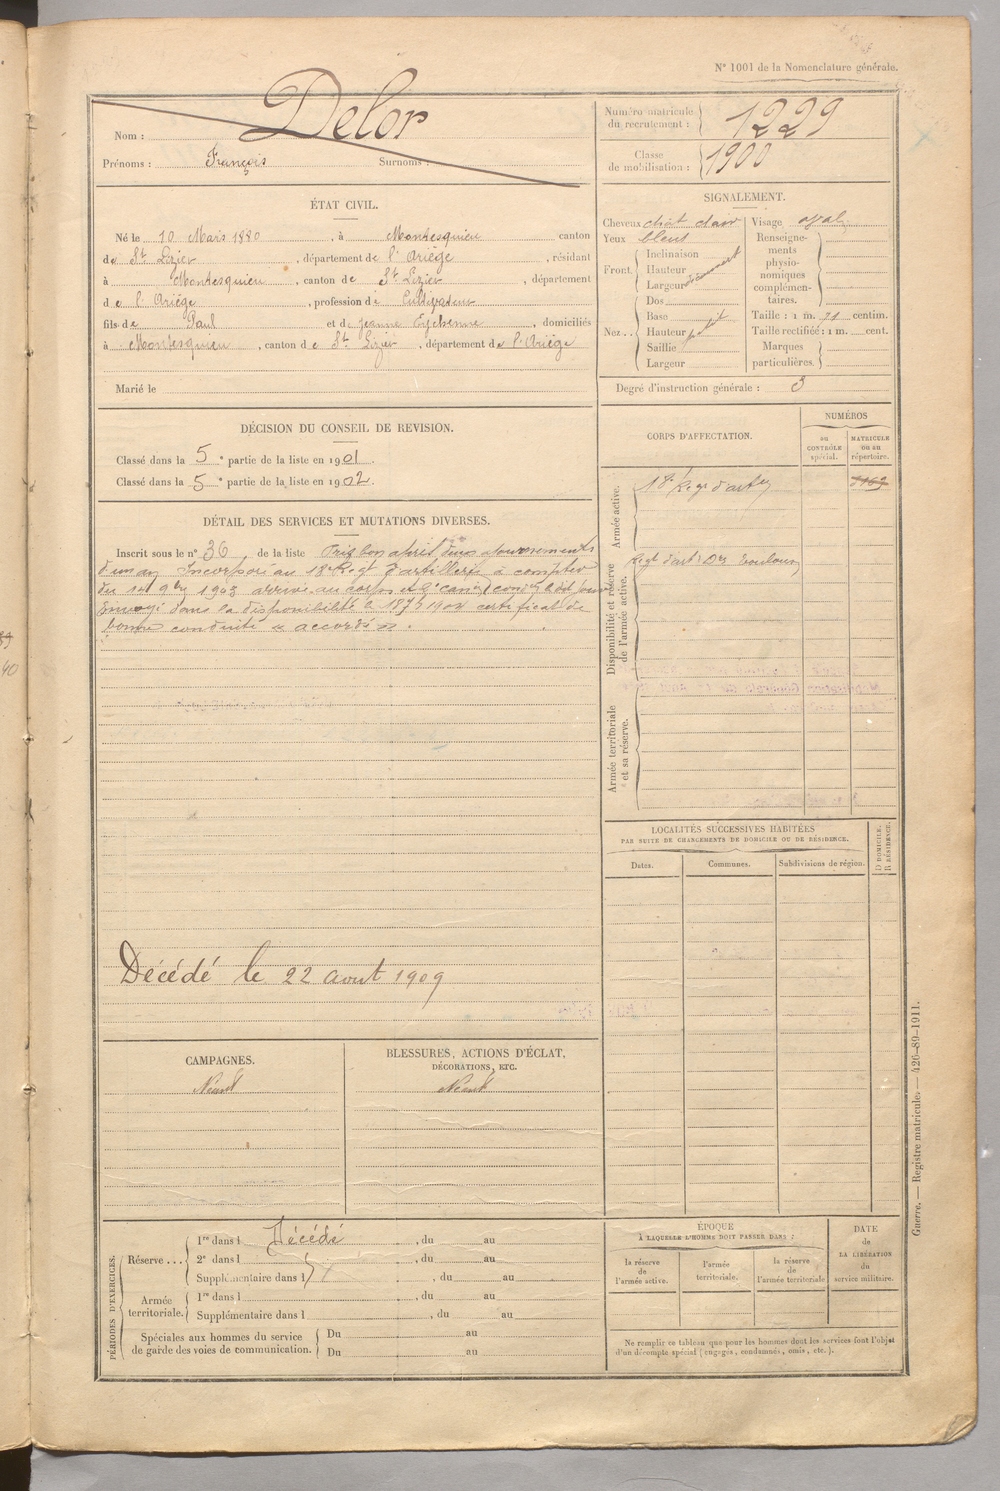 N° 1001 de la Nomenclature générale.
Nom : Delor
Prénoms : François Surnoms :
Numéro matricule du recrutement : 1229
Classe de mobilisation : 1900
ÉTAT CIVIL.
Né le 10 Mars 1880, à Montesquieu canton
de St Lizier, département de l'Ariège, résidant
à Montesquieu, canton de St Lizier, département
de l'Ariège, profession de Cultivateur
fils de Paul et de Jeanne Eychenne, domiciliés
à Montesquieu, canton de St Lizier, département de l'Ariège
Marié le
SIGNALEMENT.
Cheveux chat clair Visage oval
Yeux bleus
Front. Inclinaison
Hauteur
Largeur
Nez... Dos
Base
Hauteur petit
Saillie
Largeur
Renseignements physionomiques complémentaires.
Taille : 1 m. 71 centim.
Taille rectifiée : 1 m. cent.
Marques particulières.
Degré d'instruction générale : 3
DÉCISION DU CONSEIL DE REVISION.
Classé dans la 5e partie de la liste en 1901.
Classé dans la 5e partie de la liste en 1902.
DÉTAIL DES SERVICES ET MUTATIONS DIVERSES.
Inscrit sous le n° 36 de la liste Pris bon après deux ajournements
d'un an Incorporé au 18e Regt d'artillerie à compter
du 14 9bre 1903 arrivé au corps et 2e can. cond. le dit jour
Envoyé dans la disponibilité le 18 7 1904 certificat de
bonne conduite « accordé ».
Décédé le 22 Aout 1909
CORPS D'AFFECTATION.
NUMÉROS
au CONTRÔLE spécial.
MATRICULE ou au répertoire.
Armée active.
18e Regt d'arty
Disponibilité et réserve de l'armée active.
Regt d'art. Don Toulouse
Armée territoriale et sa réserve.
LOCALITÉS SUCCESSIVES HABITÉES
PAR SUITE DE CHANGEMENTS DE DOMICILE OU DE RÉSIDENCE.
Dates. Communes. Subdivisions de région. D DOMICILE. R RÉSIDENCE.
CAMPAGNES.
Néant
BLESSURES, ACTIONS D'ÉCLAT,
DÉCORATIONS, ETC.
Néant
PÉRIODES D'EXERCICES.
Réserve ... 1re dans l Décédé, du au
2e dans l, du au
Supplémentaire dans l, du au
Armée territoriale. 1re dans l, du au
Supplémentaire dans l, du au
Spéciales aux hommes du service de garde des voies de communication. Du au
Du au
ÉPOQUE
À LAQUELLE L'HOMME DOIT PASSER DANS :
la réserve de l'armée active.
l'armée territoriale.
la réserve de l'armée territoriale
DATE de LA LIBÉRATION du service militaire.
Ne remplir ce tableau que pour les hommes dont les services font l'objet
d'un décompte spécial (engagés, condamnés, omis, etc.).
Guerre. — Registre matricule. — 426-89-1911.